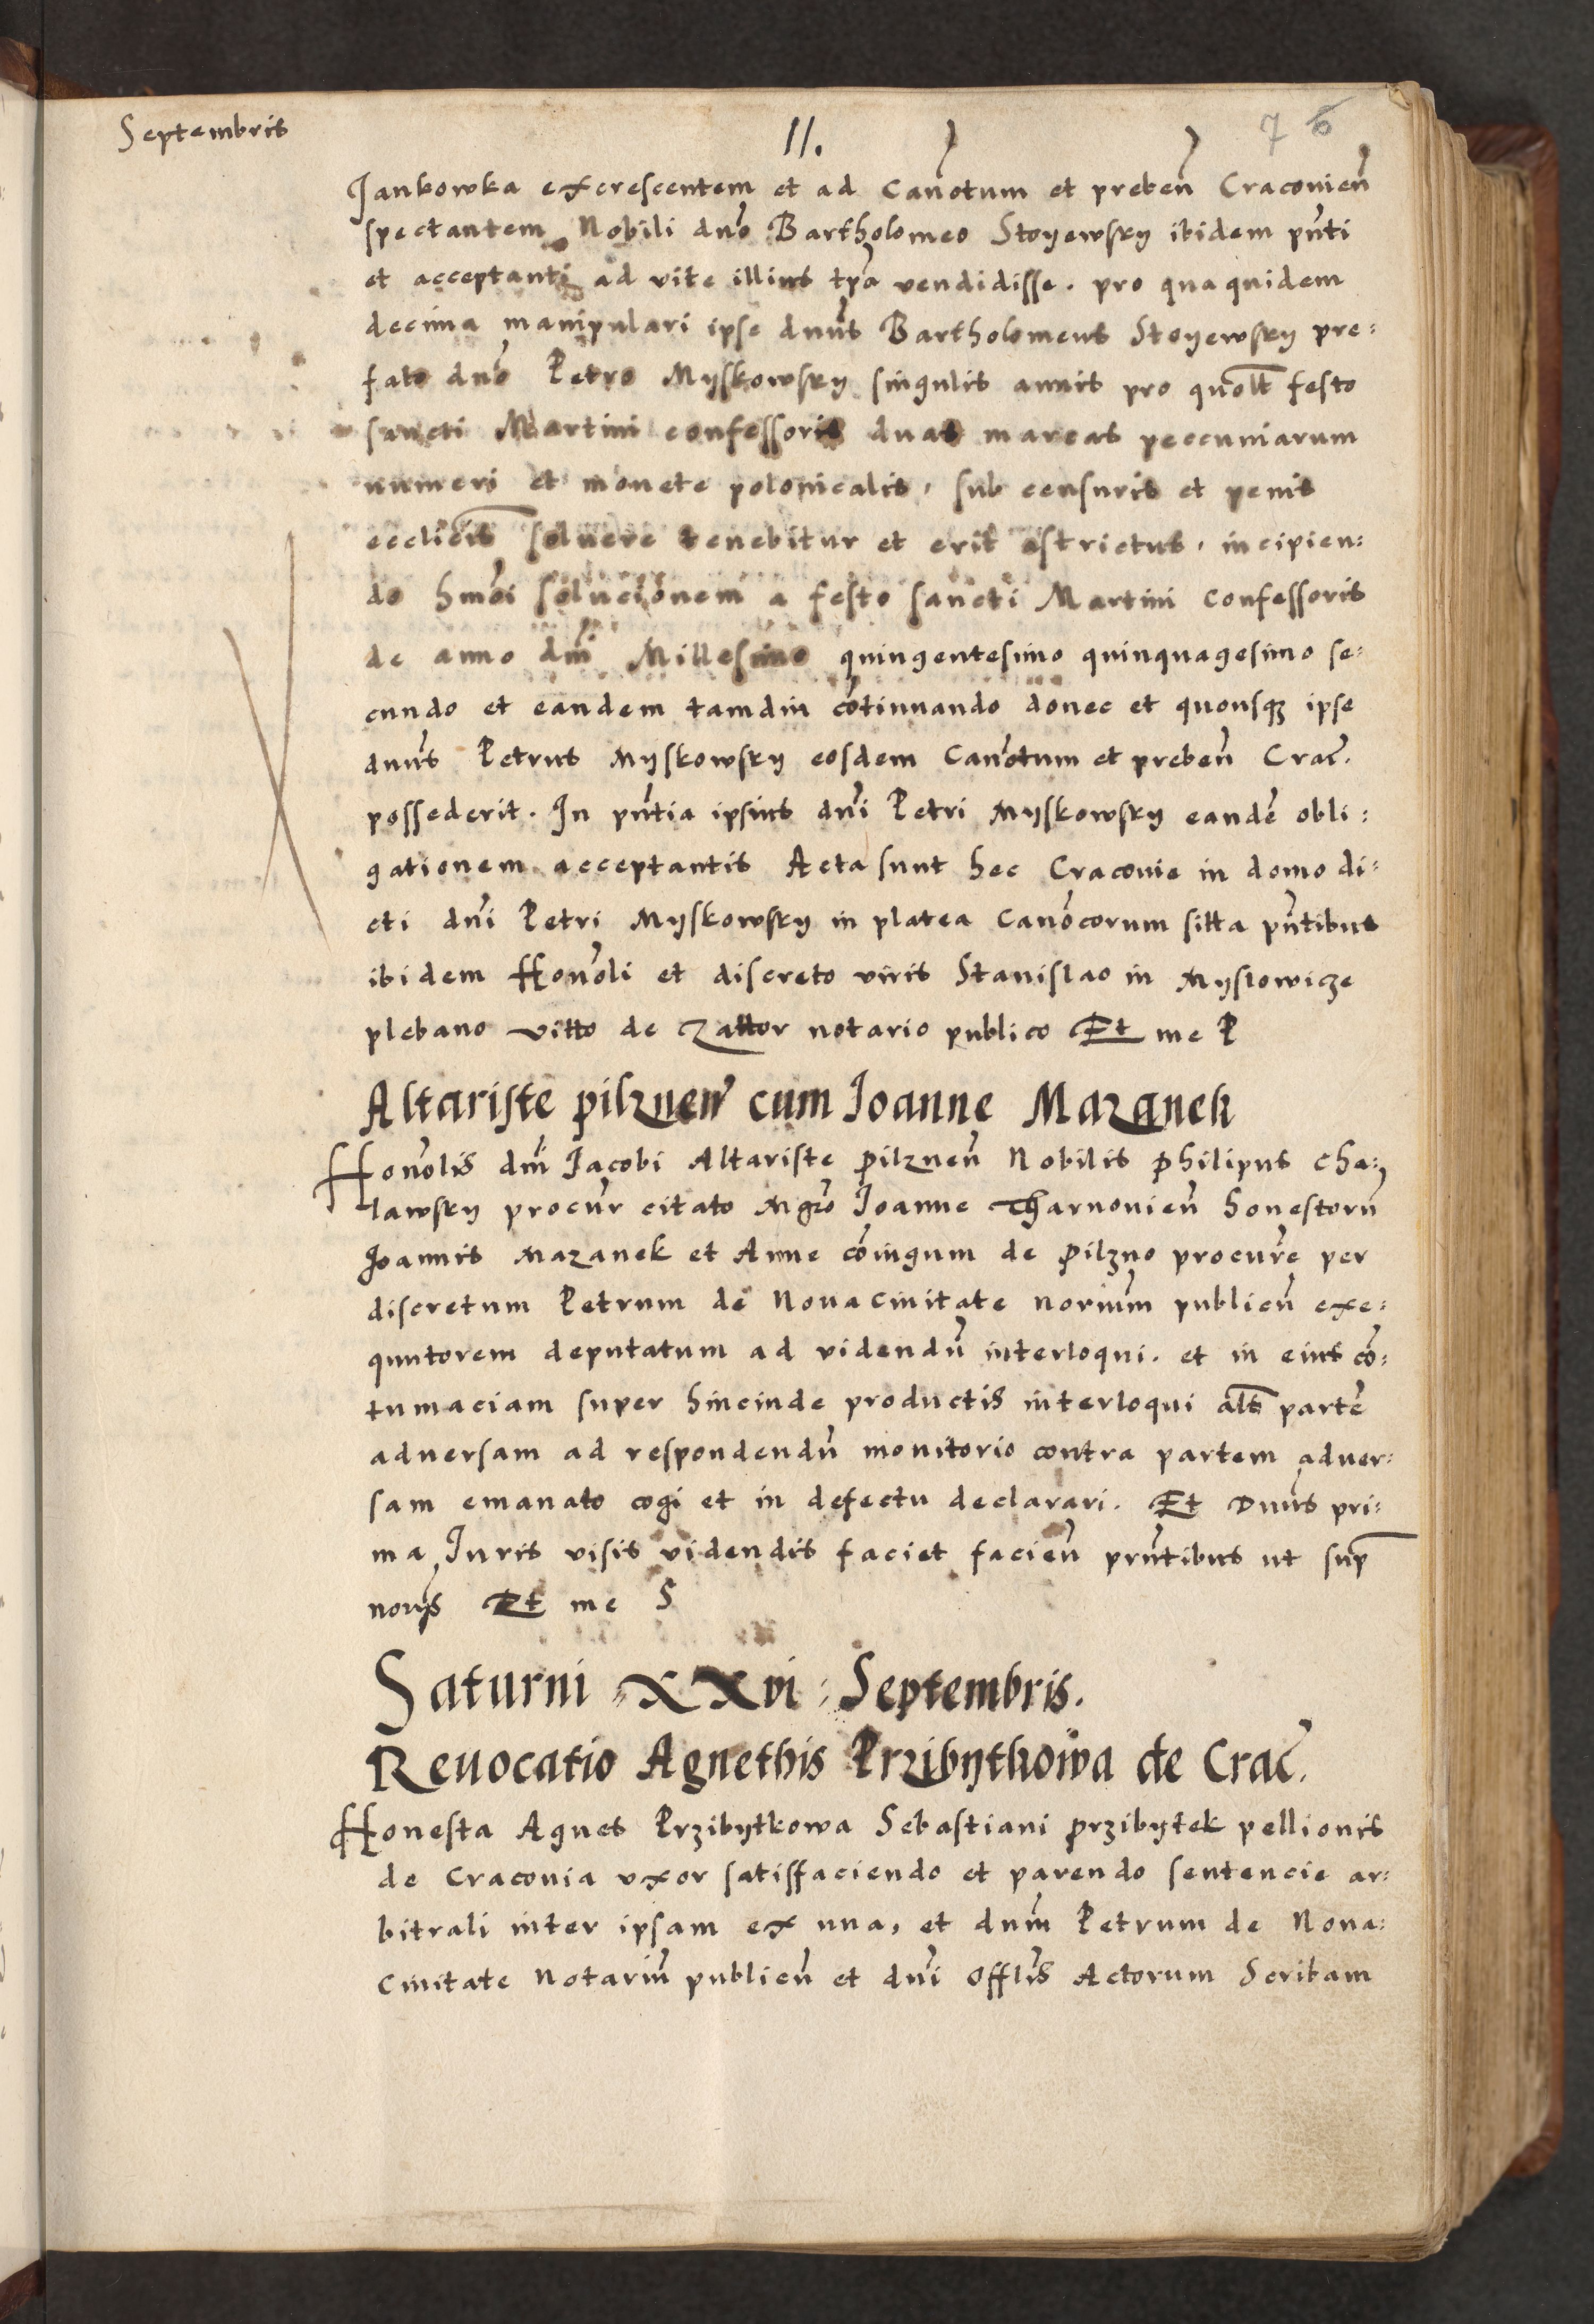 Septembris
11.
7 6
Jankowka excrescentem et ad Can̄otum et preben̄ Craconien̄
spectantem Nobili dn̄o Bartholomeo Stoyewsky ibidem pn̄ti
et acceptanti ad vite illius tp̄a vendidisse. pro qua quidem
decima manipulari ipse dnn̄s Bartholomeus Stoyewsky pre:
fato dn̄o Petro Myskowsky singulis annis pro quolt̄ festo
sancti Martini confessoris duas marcas peccuniarum
numeri et monete polonicalis, sub censuris et penis
ecclīcis soluere tenebitur et erit astrictus, incipien:
do hm̄oi solucionem a festo sancti Martini Confessoris
de anno dn̄i Millesimo quingentesimo quinquagesimo se:
cundo et eandem tamdiu cōtinuando donec et quousqꝫ ipse
dnn̄s Petrus Myskowsky eosdem Can̄otum et preben̄ Crac̄.
possederit. In pn̄tia ipsius dn̄i Petri Myskowsky eandē obli:
gationem acceptantis Acta sunt hec Craconie in domo di:
cti dn̄i Petri Myskowsky in platea Canōcorum sitta pn̄tibus
ibidem Hon̄oli et discreto viris Stanislao in Myslowicze
plebano Vitto de Zattor notario publico Et me P
Altariste pilznen̄ cum Joanne Mazanek
Hon̄olis dn̄i Jacobi Altariste Pilznen̄ Nobilis Philipus Cha:
lawsky procur̄ citato Mgr̄o Joanne Tharnouien̄ honestorū
Joannis Mazanek et Anne cōiugum de Pilzno procur̄e per
discretum Petrum de Nouaciuitate noriūm publicū exe:
quutorem deputatum ad videndū interloqui. et in eius cō:
tumaciam super hincinde productis interloqui alt̄s partē
aduersam ad respondendū monitorio contra partem aduer:
sam emanato cogi et in defectu declarari. Et Dnn̄s pri:
ma Juris visis videndis faciet facien̄ prn̄tibus ut sup̄
norijs Et me S
Saturni XXvi Septembris.
Reuocatio Agnethis Przibytkowa de Crac̄.
Honesta Agnes Przibytkowa Sebastiani Przibytek pellionis
de Craconia vxor satisfaciendo et parendo sentencie ar:
bitrali inter ipsam ex una, et dnm̄ Petrum de Noua:
Ciuitate Notariū publicū et dn̄i Offl̄is Actorum Scribam